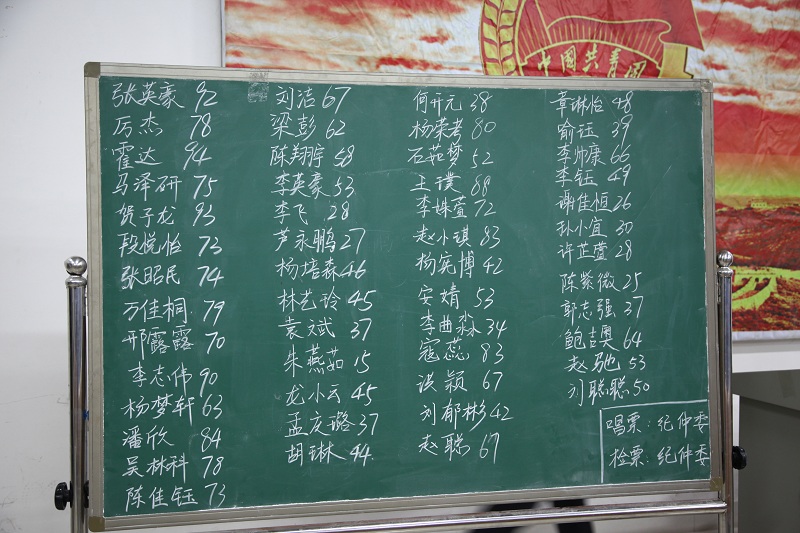 中國共青团
张英豪 92
厉杰 78
霍达 94
马泽研 75
贺子龙 93
段悦怡 73
张昭民 74
万佳桐 79
邢露露 70
李志伟 90
杨梦轩 63
潘欣 84
吴林科 78
陈佳钰 73
刘洁 67
梁彭 62
陈翔宇 68
李英豪 53
李飞 28
芦永鹏 27
杨培森 46
林艺玲 45
袁斌 37
朱燕茹 15
龙小云 45
孟庆璐 37
胡琳 44
何开元 38
杨荣考 80
石茹梦 52
王璞 88
李姝萱 72
赵小琪 83
杨奕博 42
安婧 53
李曲淼 34
寇蕊 83
洪颖 67
刘郁彬 42
赵聪 67
章琳怡 48
喻钰 39
李帅康 66
李钰 49
谢佳恒 26
孙小宜 30
许芷萱 28
陈紫微 25
郭志强 37
鲍喆奥 64
赵驰 53
刘聪聪 50
唱票：纪仲委
检票：纪仲委